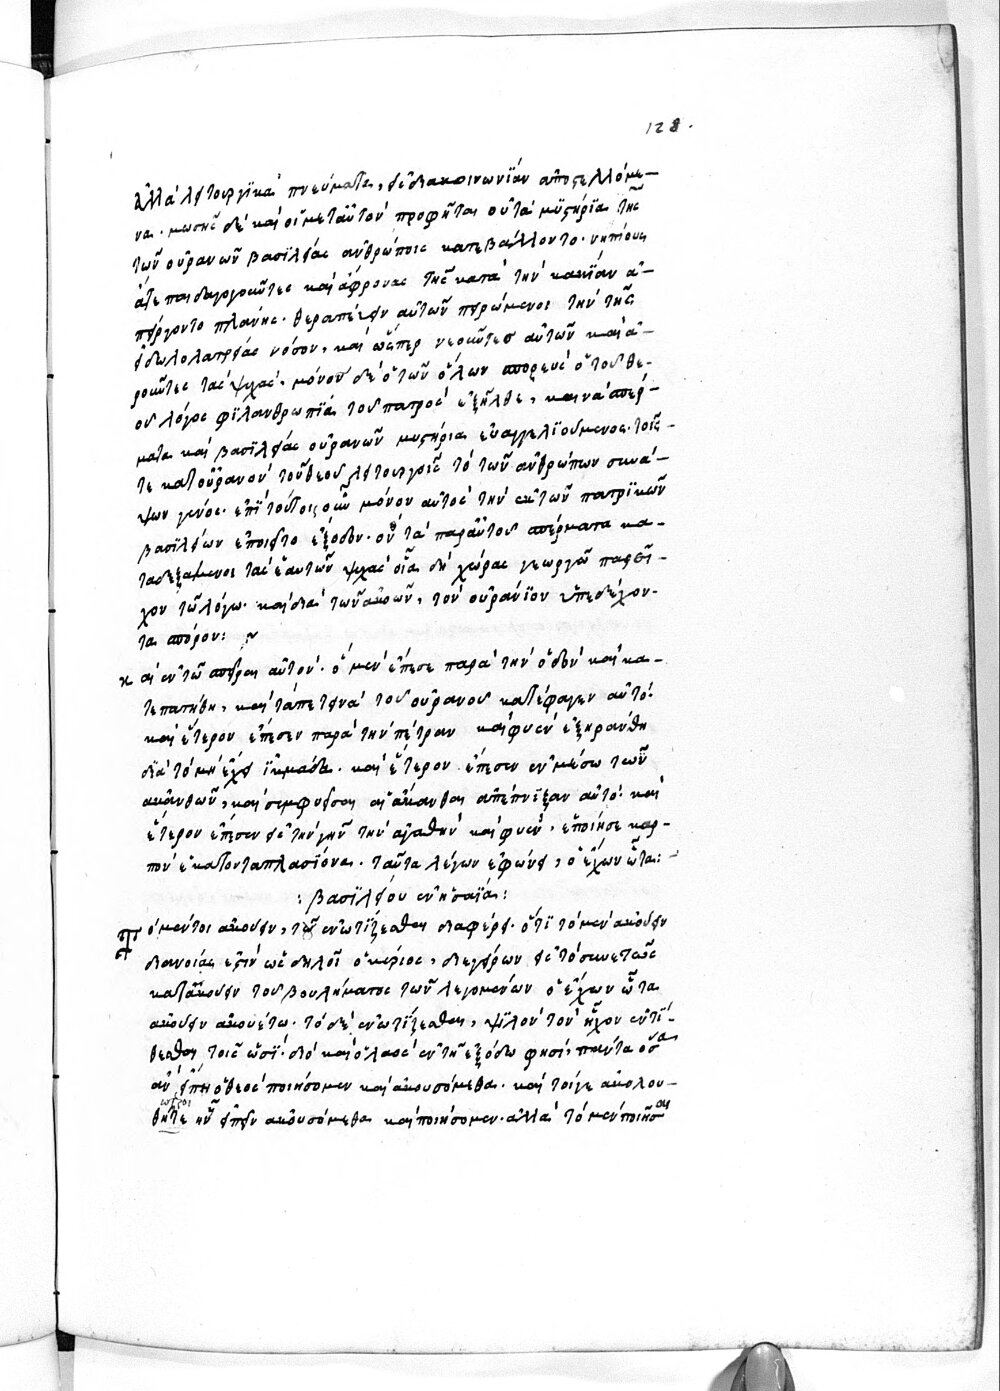 128.
ἀλλὰ λειτουργϊκὰ πνεύματα, εἰς διακοινωνΐαν ἀποστελλόμε-
να. μωσῆς δὲ καὶ οἱ μετ αὐτὸν προφῆται οὐ τὰ μϋστήρϊα τῆς
τῶν οὐρανῶν βασϊλείας ἀνθρώποις κατεβάλλοντο. νηπίους
ἅτε παιδαγογοῦντες καὶ ἄφρονας τῆς κατὰ τὴν κακΐαν ἀ-
πείργοντο πλάνης. θεραπεύειν αὐτῶν πειρώμενοι τὴν τῆς
εἰδωλολατρείας νόσον, καὶ ὥσπερ νεοῦντεσ αὐτῶν καὶ ἀ-
ροῦντες τὰς ψυχάς. μόνου δὲ ὁ τῶν ὅλων σπορεὺς ὁ τοῦ θε-
οῦ λόγος φϊλανθρωπϊᾳ τοῦ πατρὸς ἐξῆλθε, καινὰ σπέρ-
ματα καὶ βασϊλείας οὐρανῶν μυστήρια εὐαγγελϊούμενος. τοῖς
τε κατ οὐρανὸν τοῦ θεοῦ λειτουργοῖς τὸ τῶν ἀνθρώπων συνά-
ψων γένος. ἐπὶ τούτοις οὖν μόνον αὐτὸς τὴν ἐκ τῶν πατρϊκῶν
βασϊλείων ἐποιεῖτο ἔξοδον. οὗ τὰ παρ αὐτοῦ σπέρματα κα-
ταδεξάμενοι τὰς ἑαυτῶν ψυχὰς οἷα δὴ χώρας γεωργῷ παρεῖ-
χον τῷ λόγῳ. καὶ διὰ τῶν ἀκοῶν, τὸν οὐράνϊον ὑπεδέχον-
τα σπόρον:
καὶ ἐν τῷ σπεῖραι αὐτὸν. ὁ μὲν ἔπεσε παρὰ τὴν ὁδὸν καὶ κα-
τεπατήθη, καὶ τὰ πετεινὰ τοῦ οὐρανοῦ κατέφαγεν αὐτό.
καὶ ἕτερον ἔπεσεν παρὰ τὴν πέτραν καὶ φυὲν ἐξηράνθη
διὰ τὸ μὴ ἔχειν ἰκμάδα. καὶ ἕτερον ἔπεσεν ἐν μέσω τῶν
ἀκανθῶν, καὶ συμφυεῖσαι αἱ ἄκανθαι ἀπέπνϊξαν αὐτό. καὶ
ἕτερον ἔπεσεν εἰς τὴν γῆν τὴν ἀγαθὴν καὶ φυὲν, ἐποίησε καρ-
πὸν ἑκατονταπλασΐονα. ταῦτα λέγων ἐφώνει, ὁ ἔχων ὦτα:-
: βασϊλείου ἐν ἡσαΐᾳ:
Τὸ μέντοι ἀκούειν, τοῦ ἐνωτΐζεσθαι διαφέρει. ὅτϊ τὸ μὲν ἀκούειν
διανοίας ἐστὶν ὡς δηλοῖ ὁ κύριος, διεγείρων εἰς τὸ συνετῶς
κατακούειν τοῦ βουλήματος τῶν λεγομένων ὁ ἔχων ὦτα
ἀκούειν ἀκουέτω. τὸ δὲ ἐνωτΐζεσθαι, ψϊλὸν τὸν ἦχον ἐντΐ-
θεσθαι τοῖς ὠσΐ. διὸ καὶ ὁ λαὸς ἐν τῇ ἐξόδω φησὶ, πάντα ὅσα
ἂν εἴπῃ ὁ θεὸς ποιήσομεν καὶ ἀκουσόμεθα. καὶ τοίγε ἀκολου-
θητε ἦν εἰπεῖν ἀκουσόμεθα καὶ ποιήσομεν. ἀλλὰ τὸ μὲν ποιῆσαι